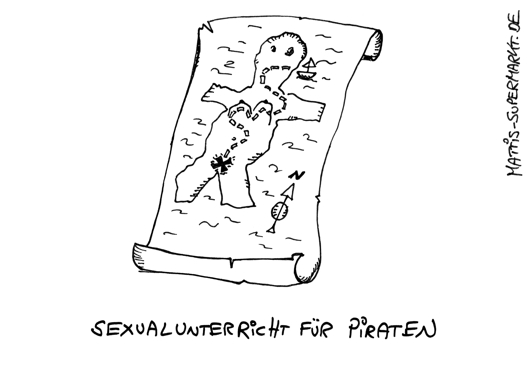 MATTIS-SUPERMARKT.DE
N
SEXUALUNTERRICHT FÜR PIRATEN